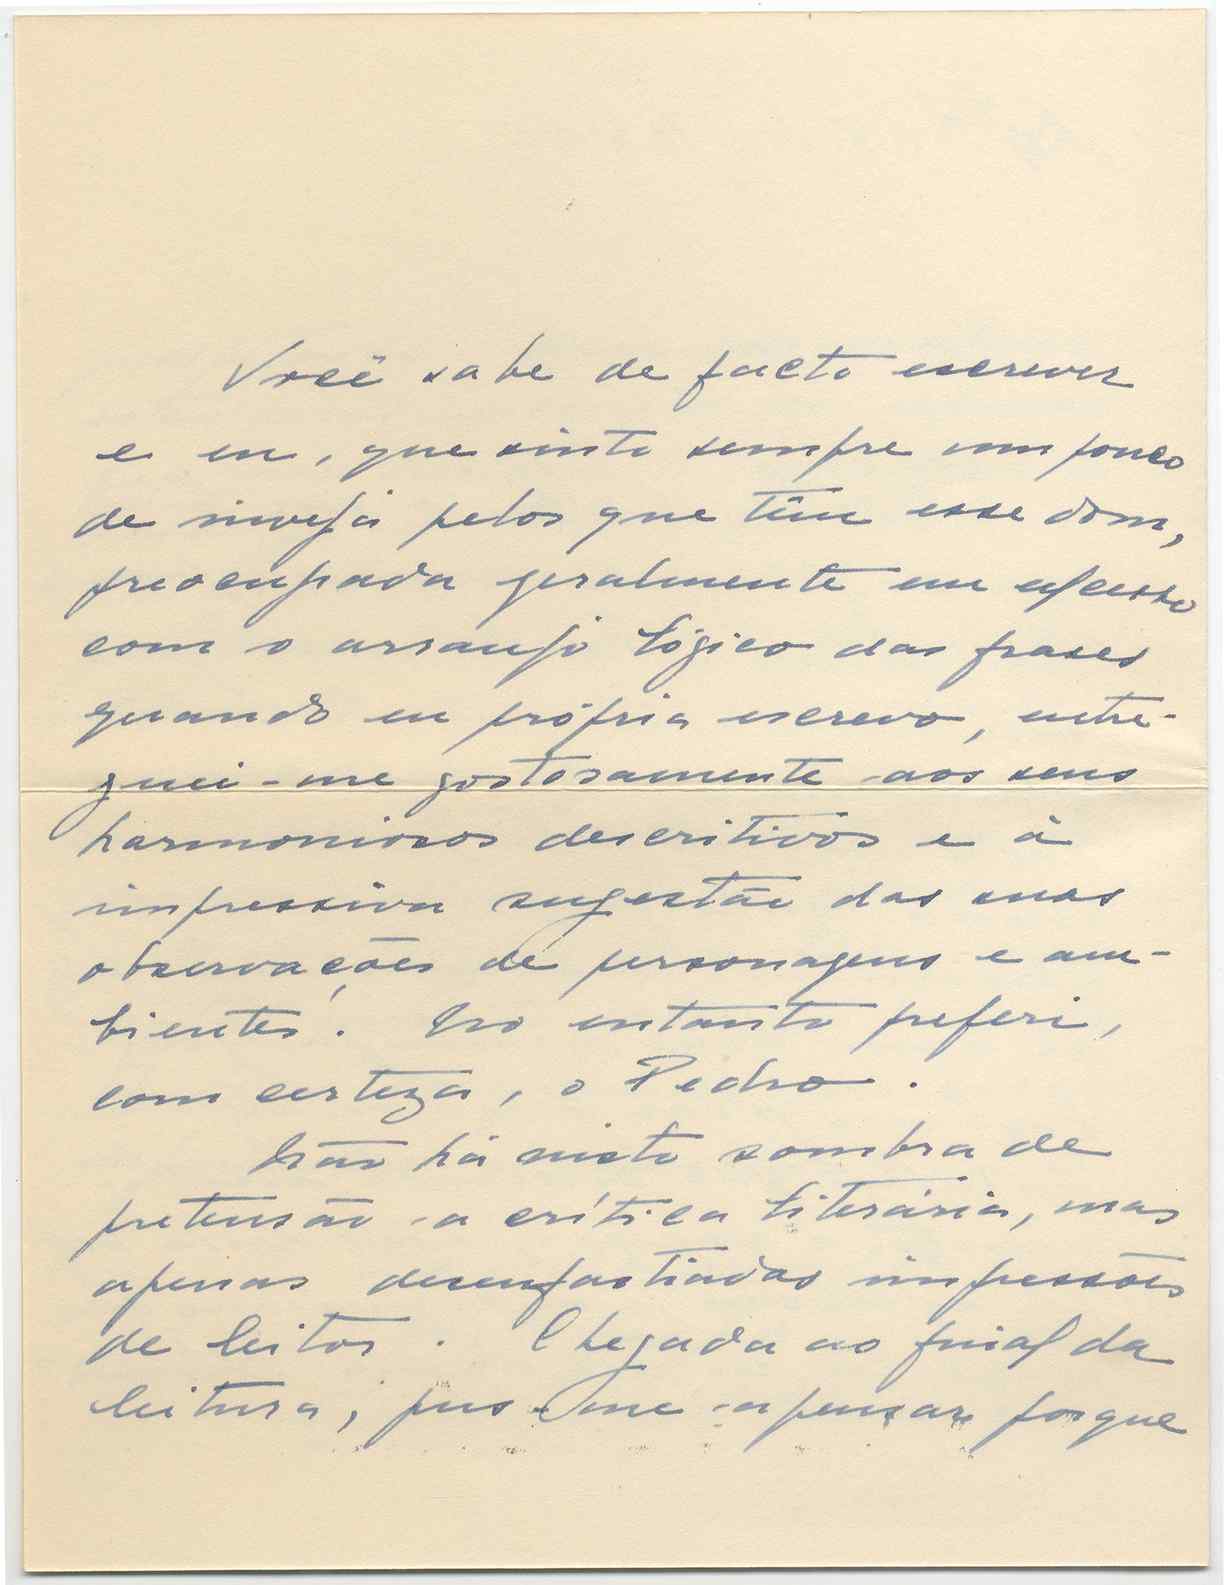 Você sabe de facto escrever
e eu, que sinto sempre um pouco
de inveja pelos que têm esse dom,
preocupada geralmente em excesso
com o arranjo lógico das frases
quando eu própria escrevo, entre-
guei-me gostosamente aos seus
harmoniosos descritivos e à
impressiva sugestão das suas
observações de personagens e am-
bientes. No entanto preferi,
com certeza, o Pedro.
Não há nisto sombra de
pretensão a crítica literária, mas
apenas desenfastiadas impressões
de leitor. Chegada ao final da
leitura, pus-me a pensar porque